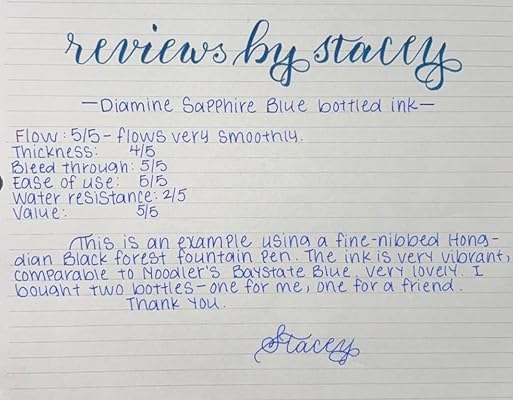 reviews by stacey
—Diamine Sapphire Blue bottled ink—
Flow: 5/5 - flows very smoothly.
Thickness: 4/5
Bleed through: 5/5
Ease of use: 5/5
Water resistance: 2/5
Value: 5/5
This is an example using a fine-nibbed Hong-
dian Black forest fountain pen. The ink is very vibrant,
comparable to Noodler's Baystate Blue, very lovely. I
bought two bottles - one for me, one for a friend.
Thank you.
Stacey